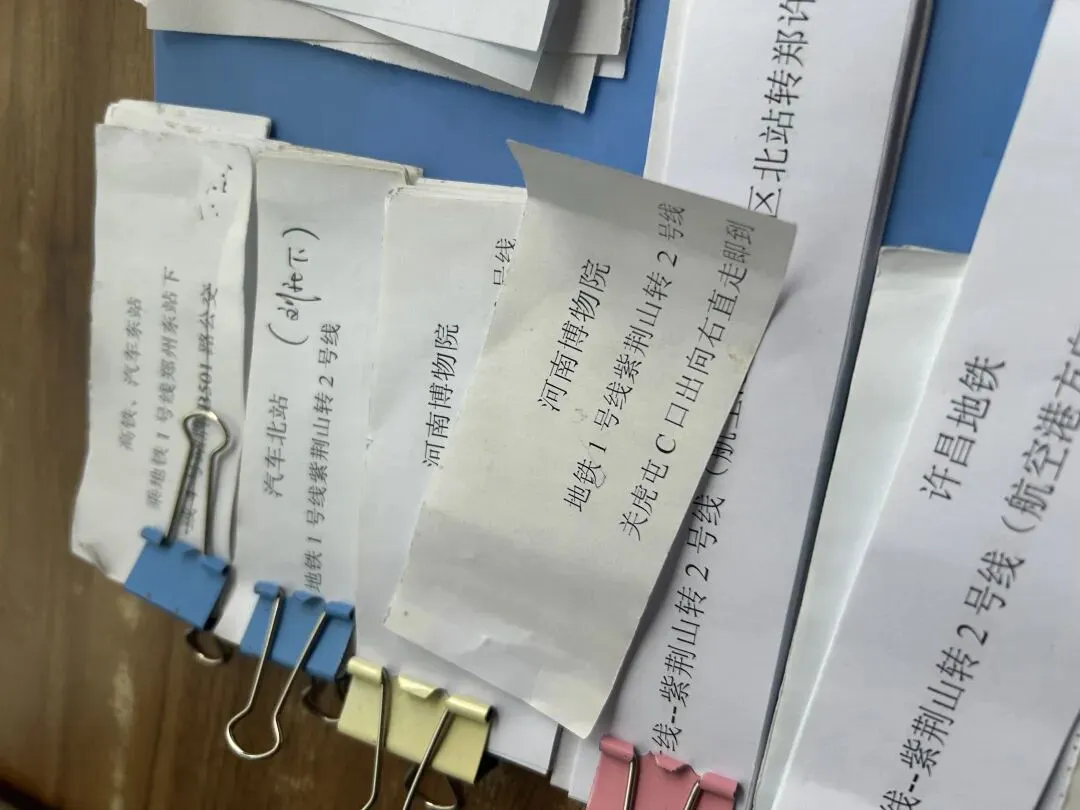 高铁、汽车东站
乘地铁 1 号线郑州东站下
B501 路公交
汽车北站
地铁 1 号线紫荆山转 2 号线
河南博物院
号线
河南博物院
地铁 1 号线紫荆山转 2 号线
关虎屯 C 口出向右直走即到
区北站转郑许
线--紫荆山转 2 号线（航空
许昌地铁
线--紫荆山转 2 号线（航空港方向